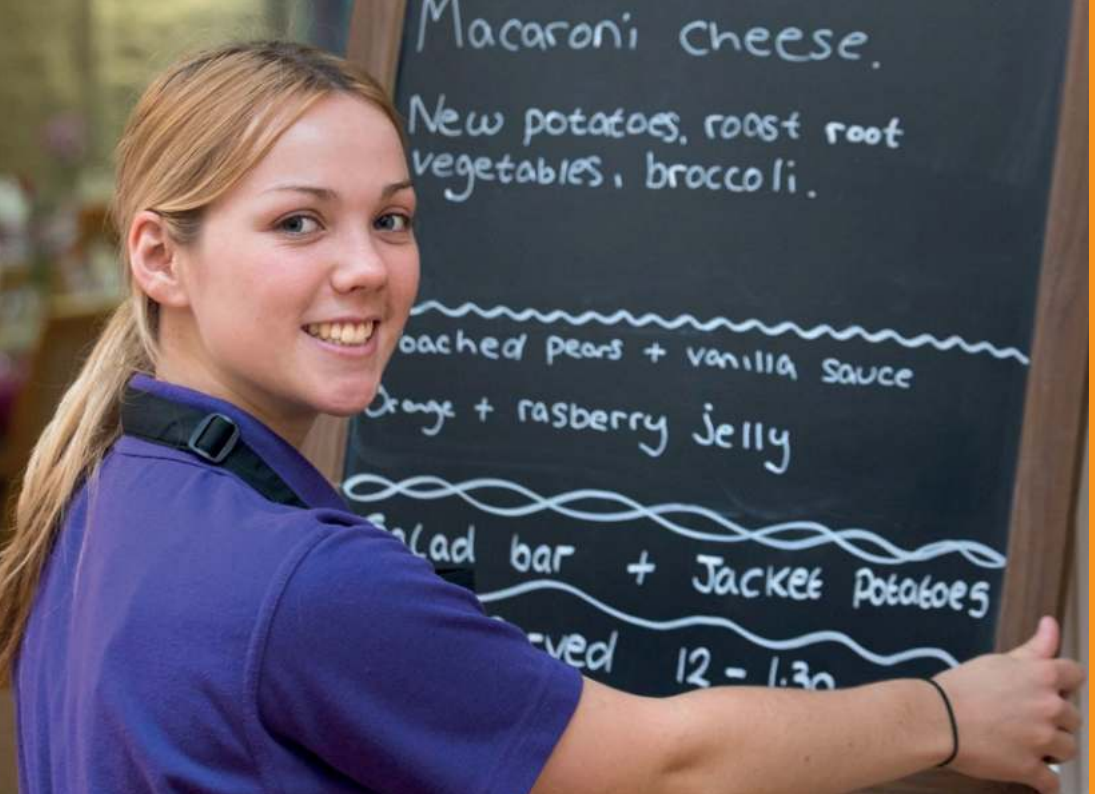 Macaroni cheese.
New potatoes, roast root
vegetables, broccoli.
oached pears + vanilla sauce
Orange + rasberry jelly
Salad bar + Jacket Potatoes
rved 12 - 1.30